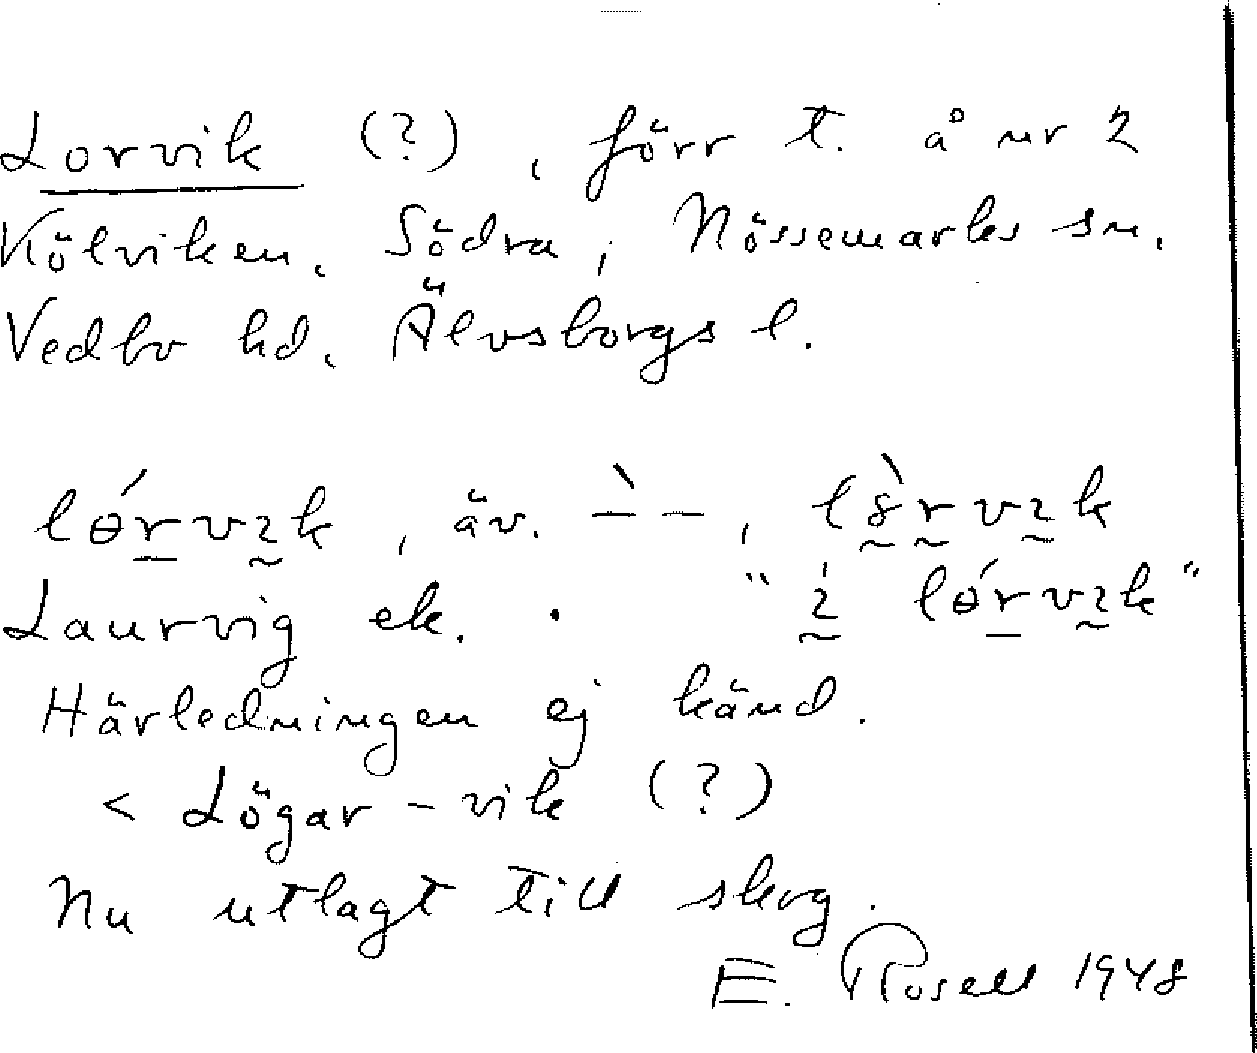 Lorvik (?), förr t. å nr 2
Kölviken, Södra, Nössemarks sn,
Vedbo hd, Älvsborgs l.
lɵ́rvɩk, äv. –̀ –, lꝸ̀rvɩk
Laurvig ek. · "ɩ́ lɵ́rvɩk"
Härledningen ej känd.
< Lögar-vik (?)
Nu utlagt till skog.
E. Rosell 1948